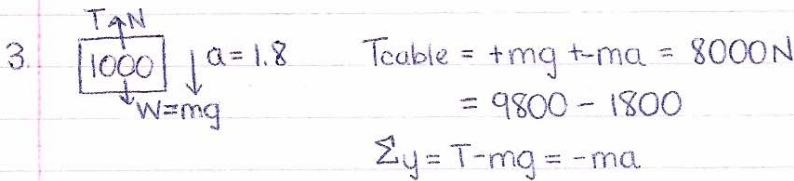 T N
3. 1000 a = 1.8 Tcable = +mg +-ma = 8000N
W=mg = 9800 - 1800
Σy = T-mg = -ma